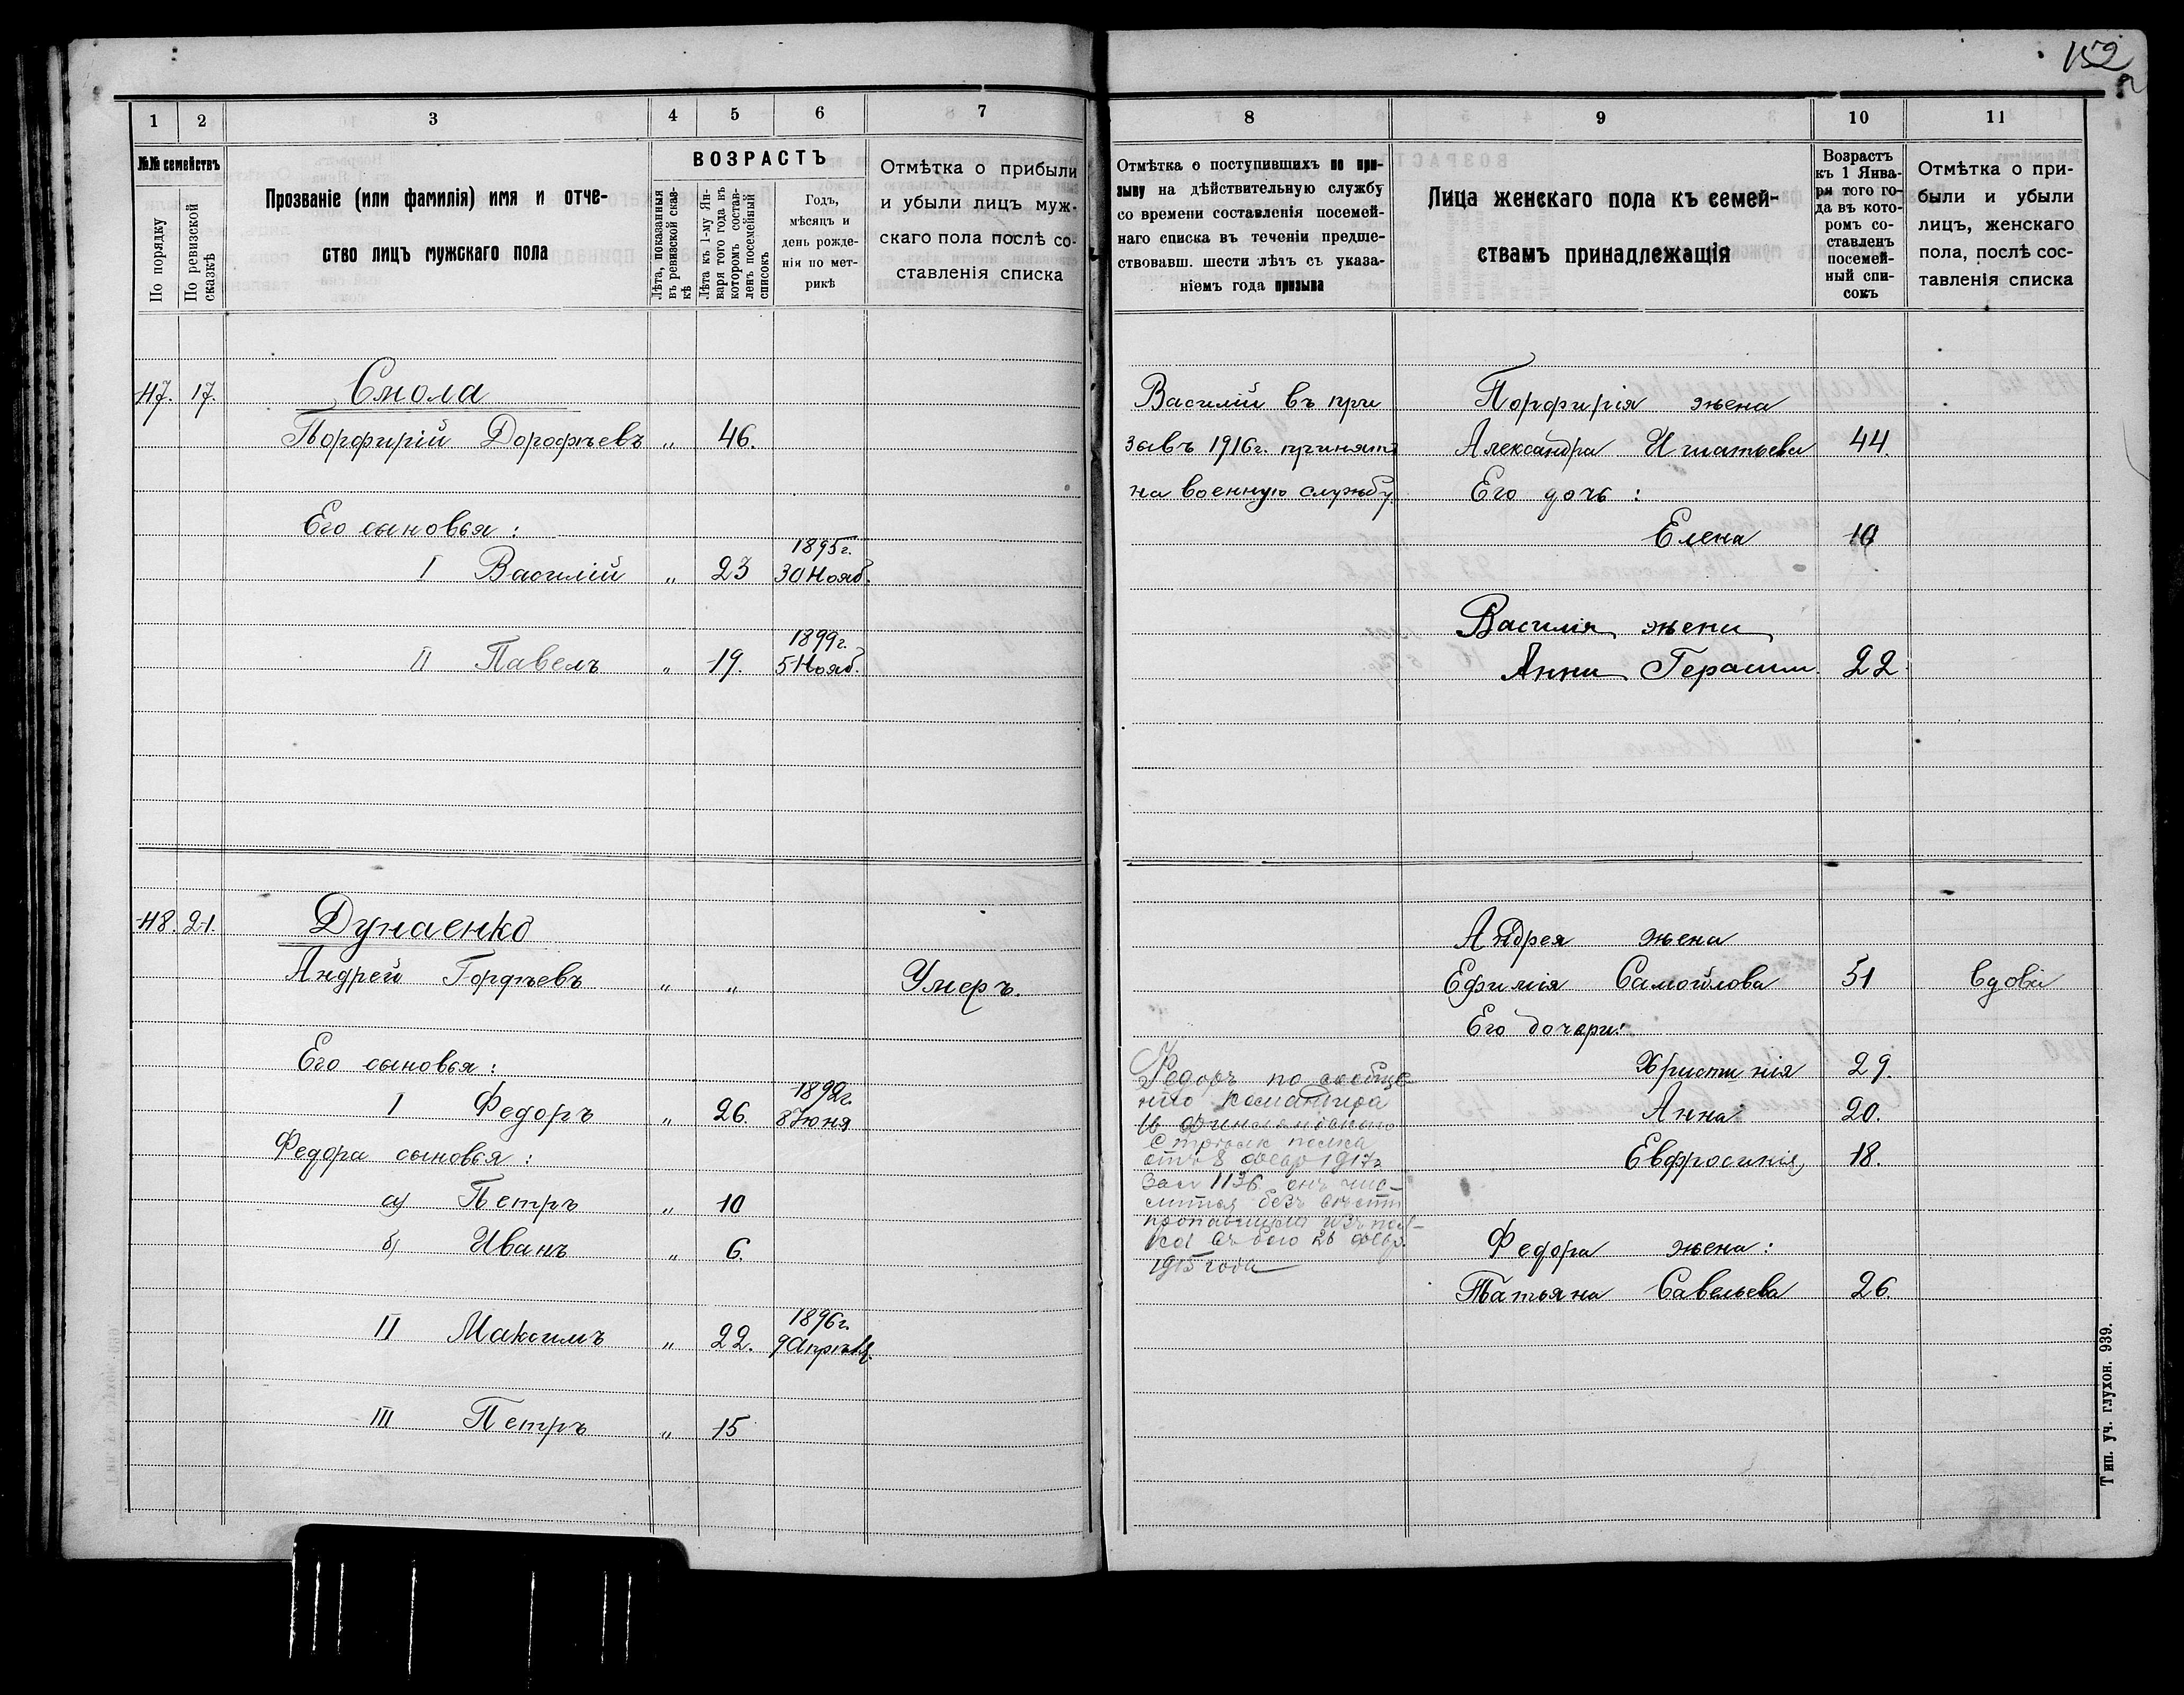 152
1 2 3 4 5 6 7
№№ семействъ
По порядку
По ревизской сказкѣ
Прозваніе (или фамилія) имя и отче-
ство лицъ мужскаго пола
ВОЗРАСТЪ
Лѣта, показанныя въ ревизской сказ-кѣ
Лѣта къ 1-му Ян-варя того года въ которомъ состав-ленъ посемейный списокъ
Годъ,
мѣсяцъ и
день рожде-
нія по мет-
рикѣ
Отмѣтка о прибыли
и убыли лицъ муж-
скаго пола послѣ со-
ставленія списка
47. 17. Смола
Порфирій Дорофѣевъ „ 46.
Его сыновья:
1895г.
I Василій „ 23 30 Нояб.
1899г.
II Павелъ „ 19. 5 Нояб.
48. 21. Дунаенко
Андрей Гордѣевъ „ „ Умеръ.
Его сыновья:
1892г.
I Федоръ „ 26. 8 Юня
Федора сыновья:
а) Петръ „ 10
б) Иванъ „ 6.
1896г.
II Максимъ „ 22. 9 Апрѣля.
III Петръ „ 15
8 9 10 11
Отмѣтка о поступившихъ по при-
зыву на дѣйствительную службу
со времени составленія посемей-
наго списка въ теченіи предше-
ствовавш. шести лѣтъ съ указа-
ніемъ года призыва
Лица женскаго пола къ семей-
ствамъ принадлежащія
Возрастъ
къ 1 Янва-
ря того го-
да въ кото-
ромъ со-
ставленъ
посемей-
ный спи-
сокъ
Отмѣтка о при-
были и убыли
лицъ, женскаго
пола, послѣ сос-
тавленія списка
Василій въ при
зывъ 1916г. принятъ
на военную службу.
Порфирія жена
Александра Игнатьева 44.
Его дочь:
Елена 10
Василія жена
Анна Герасим. 22.
Андрея жена
Ефимія Самойлова 51 вдова
Его дочери:
Христинія 29.
Анна 20.
Евфросинія 18.
Федоръ по сообще
нію командира
16 Финляндскаго
Стрѣльк полка
отъ 8 февр 1917г
за № 1136 онъ чис-
лится безъ вѣсти
пропавшимъ изъ пол-
ка съ февр.
1915 года
Федора жена:
Татьяна Савельева 26.
Тип. уч. глухон. 939.